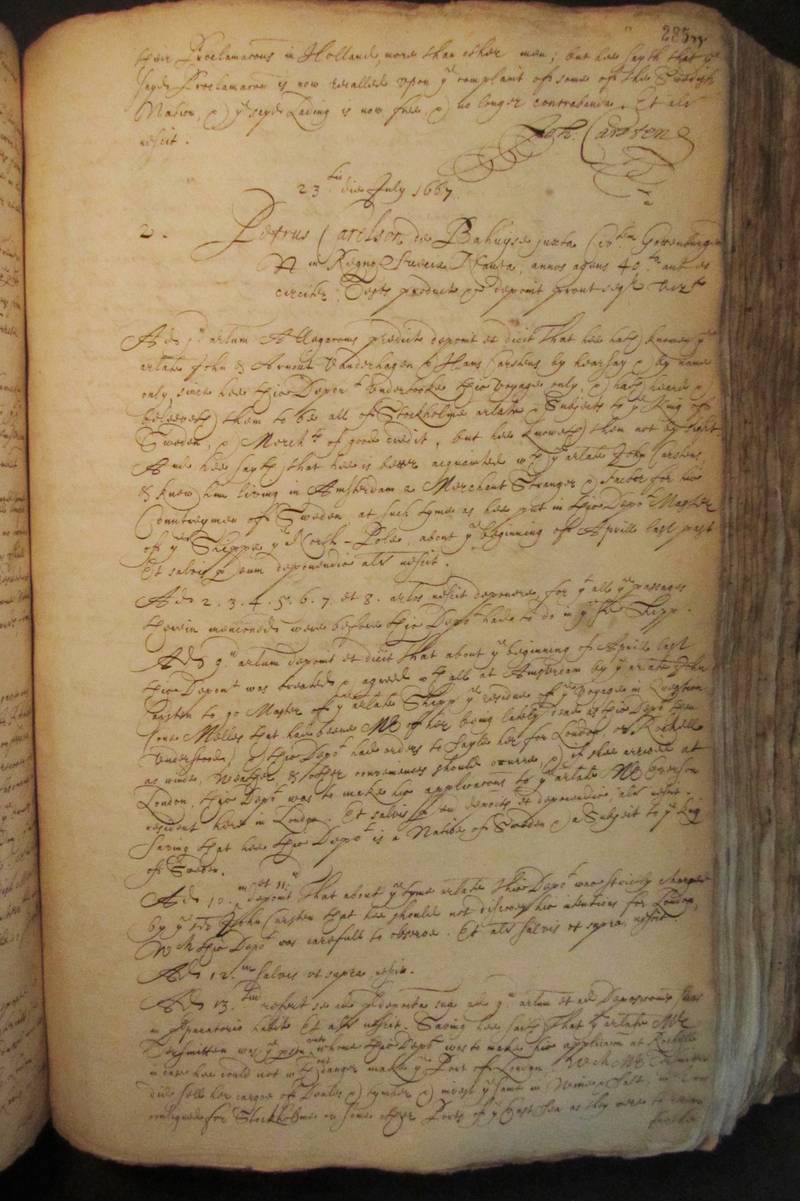 285
their Proclamacons in Holland, more than other men; but hee sayth that ye
sayd Proclamacon is now recalled upon ye complaint of some of the Swedish
Nation, & ye sayd Lading is now free & no longer contrabanda. Et als
nescit.
Joh. Carsten
23tio die July 1667
2. Petrus Carelson de Bahuyse juxta Gottenburgh
in Regno Sueciæ annos agens 40 aut eo
circiter, Testis productus &c deponit prout seqr vizt
Ad 1 artum Allegaconis predicte deponit et dicit That hee hath knowne ye
arlate John & Arnout Vanderhagen & Hans Carstens by hearsay & by name
only, since hee this Depont undertooke this Voyage only, & hath heard &
beleeveth them to be all of Stockholme arlate & Subjects to ye King of
Sweden, & Merchts of good creditt, but hee knoweth them not by sight
And hee sayth, that hee is better acquainted wth ye arlate John Carsten,
& knew him living in Amsterdam a Merchant Stranger & Factor for his
Countreymen of Sweden at such tyme as hee put in this Depot Master
of ye Shippe ye North-Pole, about ye beginning of Aprill last past
Et salvis deponendis als nescit.
Ad 2. 3. 4. 5. 6. 7. et 8. artos nescit deponere, for yt all ye passages
therein menconed were before this Depot had to do in ye sd Shipp.
Ad 9 artum deponit et dicit That about ye beginning of Aprill last
this Depont was treated & agreed wth all at Amsterdam by ye arlate John
Carsten to go Master of ye arlate Shipp ye residue of ye Voyage in Question
(one Molles that had beene Mr of her being lately dead as this Depot then
understood) & this Depot had orders to sayle her for London or Rochelle
as winde, Weather & other conveniences should occurre, & if shee arrived at
London, this Depot was to make his applicacons to ye arlate Mr
resident here in London. Et salvis deponendis als nescit.
Saving that hee this Depot is a Native of Sweden & a Subject to ye King
of Sweden.
Ad 10 et 11 deponit That about ye tyme arlate this Depot was strictly charged
by ye sd John Carsten that hee should not discover his intentions for London,
Wch this Depot was carefull to observe. Et als salvis ut supra, nescit
Ad 12. salvis ut supra nescit.
Ad 13. refert se ad predeposita sua ad 9 artum et ad
Et als nescit. Saving hee saith That ye arlate Mr
was ye person unto whome this Depot was to make his applicacon at Rochelle
in case hee could not wthout danger make ye Port of London. Wch Mr
did sell her cargoe of Deales & tymber & invest ye same in Wines & Salt,
for Stockholme or some other Ports of ye East Sea as they were to